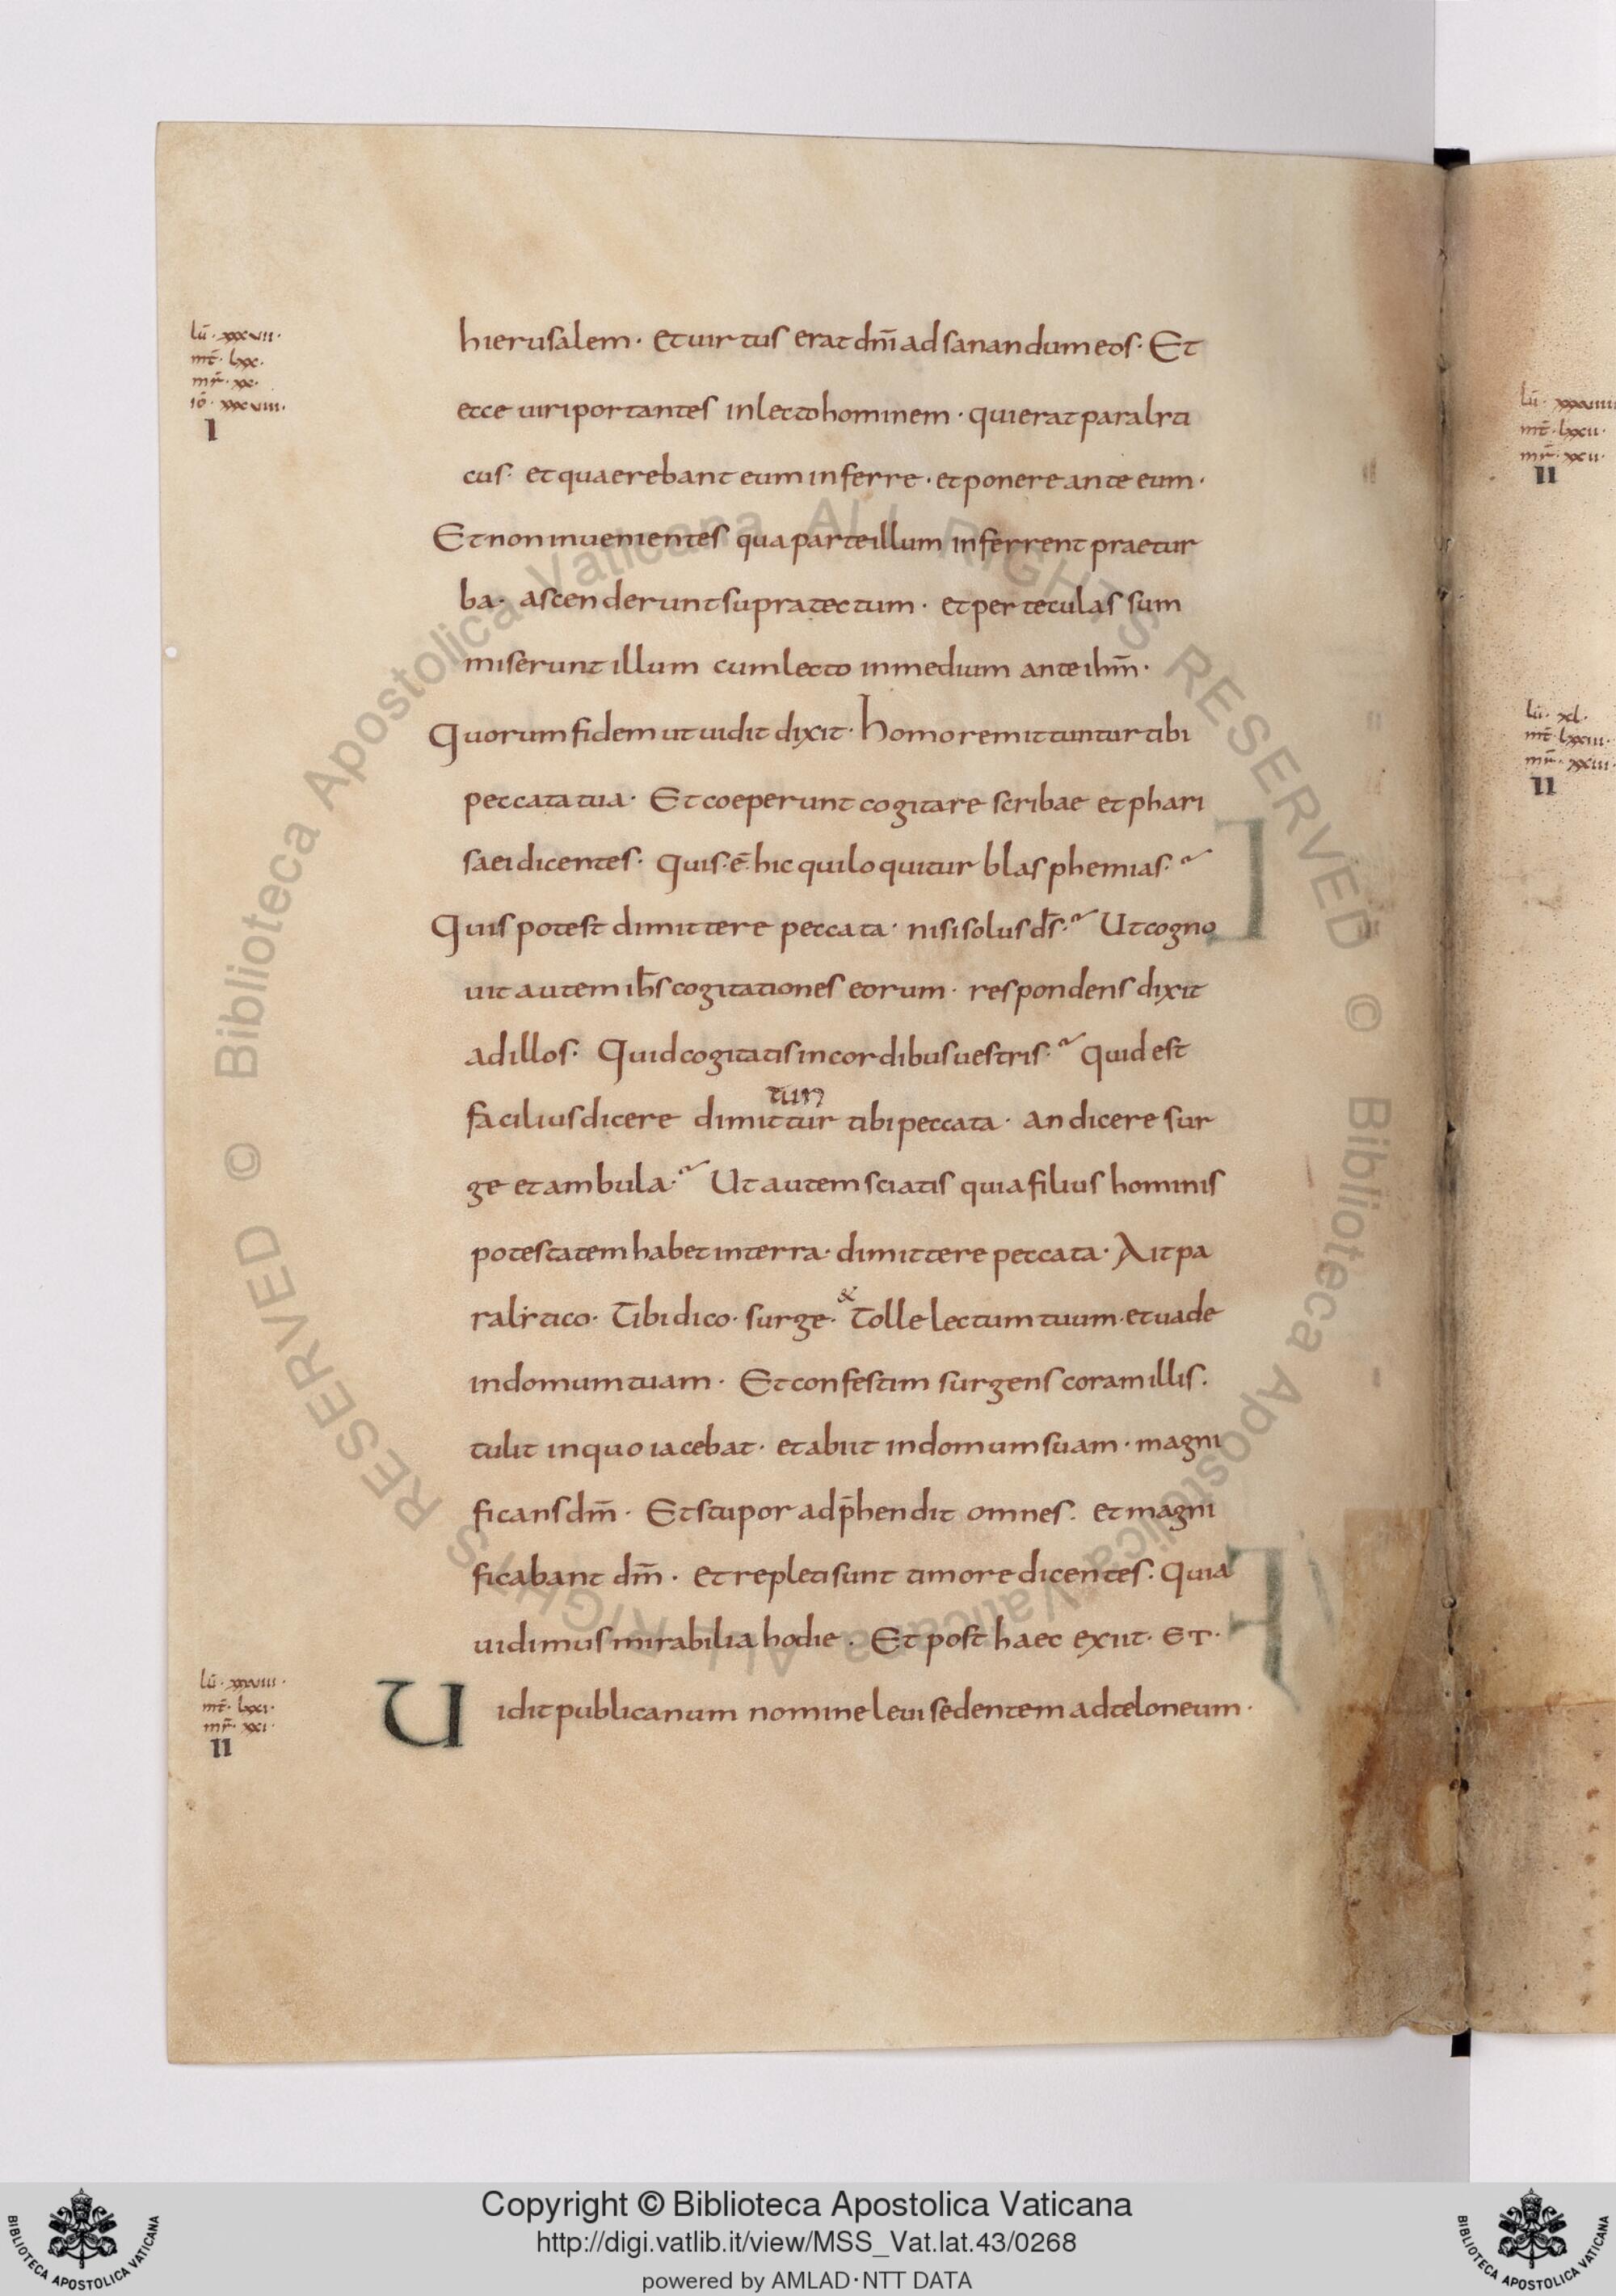 lū · xxxvii ·
mt̄ · lxx ·
mr̄ · xx ·
iō · xxxviii ·
I
hierusalem · et uirtus erat dn̄i ad sanandum eos · Et
ecce uiri portantes in lecto hominem · qui erat paralyti
cus · et quaerebant eum inferre · et ponere ante eum ·
Et non inuenientes qua parte illum inferrent prae tur
ba · ascenderunt supra tectum · et per teculas sum
miserunt illum cum lecto in medium ante ihm̄ ·
Quorum fidem ut uidit dixit · homo remittuntur tibi
peccata tua · Et coeperunt cogitare scribae et phari
saei dicentes · Quis · ē · hic qui loquitur blasphemias ·
Quis potest dimittere peccata · nisi solus ds̄ · Ut cogno
uit autem ihs̄ cogitationes eorum · respondens dixit
ad illos · Quid cogitatis in cordibus uestris · Quid est
tun
facilius dicere dimittur tibi peccata · an dicere sur
ge et ambula · Ut autem sciatis quia filius hominis
potestatem habet in terra · dimittere peccata · Ait pa
&
ralẏtico · Tibi dico · surge · Tolle lectum tuum · et uade
in domum tuam · Et confestim surgens coram illis ·
tulit in quo iacebat · et abiit in domum suam · magni
ficans dm̄ · Et stupor adp̄hendit omnes · et magni
ficabant dm̄ · et repleti sunt timore dicentes · Quia
uidimus mirabilia hodie · Et post haec exiit · ET ·
lū · xxxviii ·
mt̄ · lxxi ·
mr̄ · xxi ·
II
Uidit publicanum nomine leui sedentem ad teloneum ·
lū · xxxviiii
mt̄ · lxxii ·
mr̄ · xxii ·
II
lū · xl ·
mt̄ · lxxiii ·
mr̄ · xxiii ·
II
© Biblioteca Apostolica Vaticana ALL RIGHTS RESERVED © Biblioteca Apostolica Vaticana ALL RIGHTS RESERVED
Copyright © Biblioteca Apostolica Vaticana
http://digi.vatlib.it/view/MSS_Vat.lat.43/0268
powered by AMLAD·NTT DATA
BIBLIOTECA APOSTOLICA VATICANA
BIBLIOTECA APOSTOLICA VATICANA